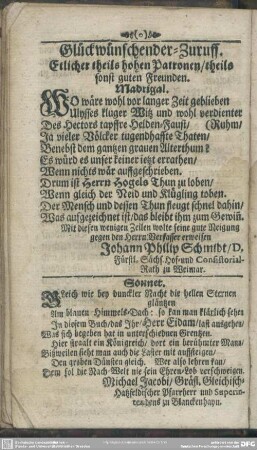 (o)
Glückwünschender-Zuruff.
Etlicher theils hohen Patronen/theils
sonst guten Freunden.
Madrigal.
WO wäre wohl vor langer Zeit geblieben
Ulysses kluger Witz und wohl verdienter
Des Hectors tapffre Helden-Faust/ (Ruhm/
Ja vieler Völcker tugendhaffte Thaten/
Benebst dem gantzen grauen Alterthum?
Es würd es unser keiner ietzt errathen/
Wenn nichts wär auffgeschrieben.
Drum ist Herrn Hogels Thun zu loben/
Wenn gleich der Neid und Klügling toben.
Der Mensch und dessen Thun fleugt schnel dahin/
Was aufgezeichnet ist/das bleibt ihm zum Gewiñ.
Mit diesen wenigen Zeilen wolte seine gute Neigung
gegen den Herrn Verfasser erweisen
Johann Philip Schmidt/D,
Fürstl. Sächs. Hof-und Consistorial-
Rath zu Weimar.
Sonnet.
GLeich wie bey dunckler Nacht die hellen Sternen
gläntzen
Am blauen Himmels-Dach: so kan man klärlich sehen
In diesem Buch/das Ihr/Herr Eidam/last ausgehen/
Was sich begeben hat in unterschiedenen Grentzen.
Hier stralt ein Königreich/dort ein berühmter Mann/
Bißweilen sieht man auch die Laster mit auffsteigen/
Den groben Dünsten gleich. Wer also lehren kan/
Dem sol die Nach-Welt nie sein Ehren-Lob verschweigen.
Michael Jacobi/ Gräfl. Gleichisch-
Hatzfeldischer Pfarrherr und Superin-
tendens zu Blanckenhayn.